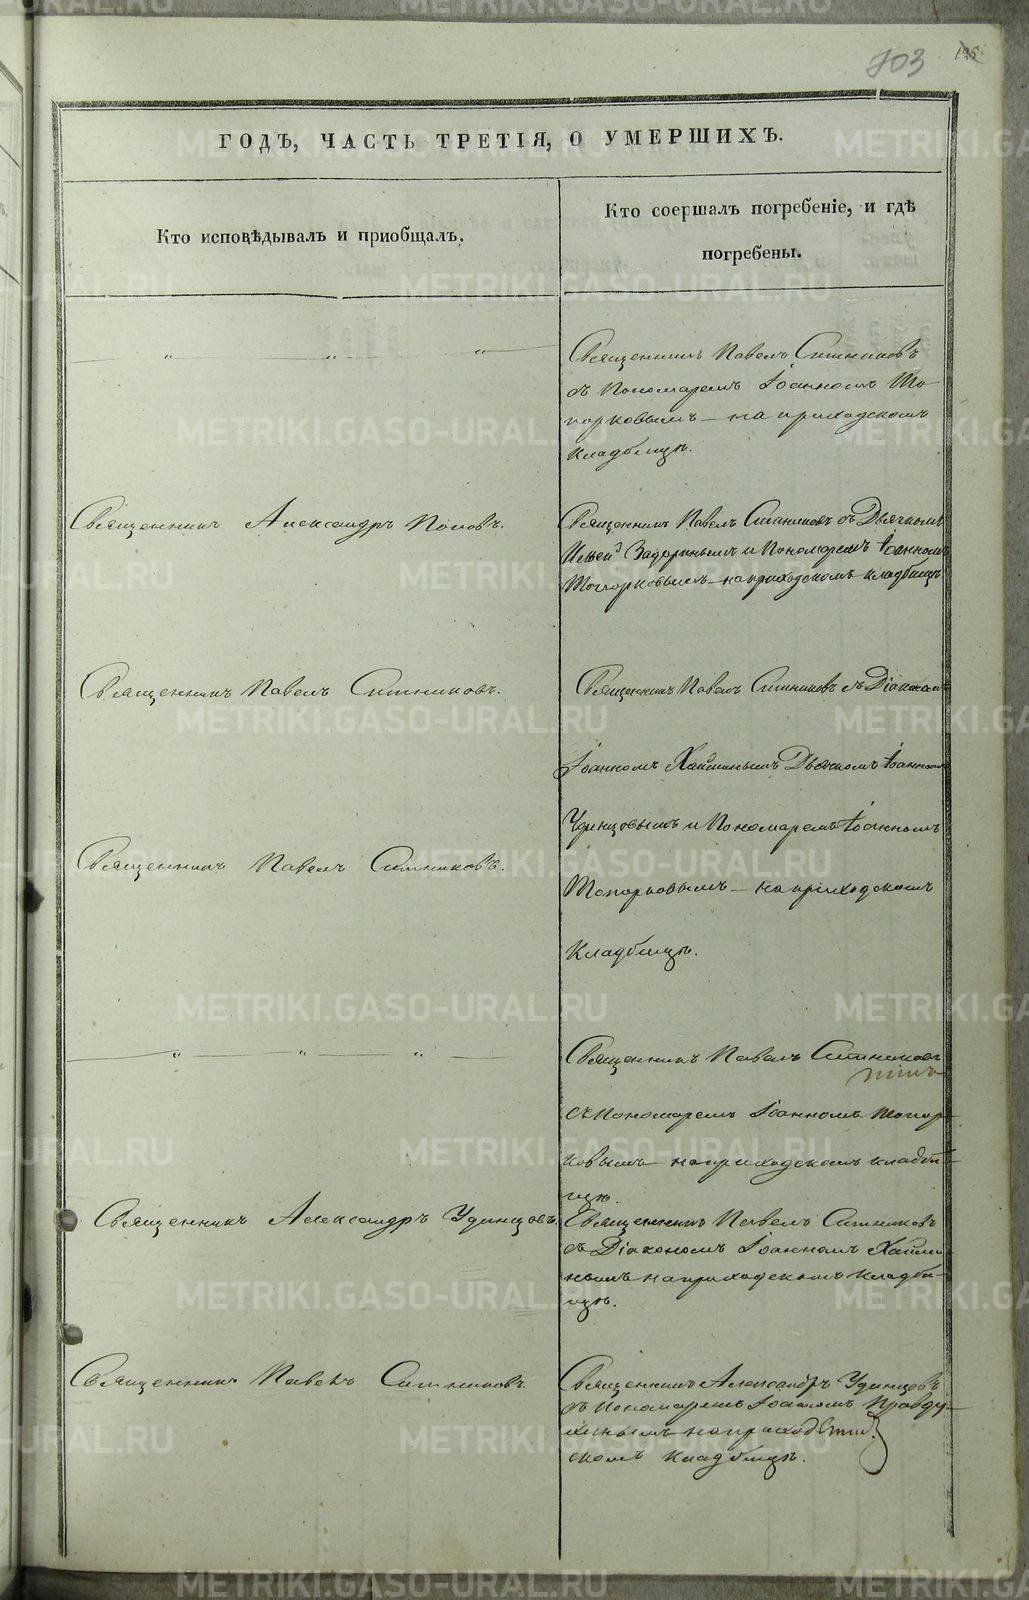 803 195
ГОДЪ, ЧАСТЬ ТРЕТІЯ, О УМЕРШИХЪ.
Кто исповѣдывалъ и пріобщалъ.
Кто соершалъ погребеніе, и гдѣ
погребены.
Священникъ Павелъ Ситниковъ
съ Пономаремъ Іоанномъ То-
порковымъ – на приходскомъ
кладбищѣ.
Священникъ Александръ Поповъ.
Священникъ Павелъ Ситниковъ съ Дьячкомъ
Ильей Задоринымъ и Пономаремъ Іоанномъ
Топорковымъ – на приходскомъ кладбищѣ.
Священникъ Павелъ Ситниковъ.
Священникъ Павелъ Ситниковъ съ Діакономъ
Іоанномъ Хайминымъ Дьячкомъ Іоанномъ
Удинцовымъ и Пономаремъ Іоанномъ
Топорковымъ – на приходскомъ
кладбищѣ.
Священникъ Павелъ Ситниковъ.
Священникъ Павелъ Ситниковъ
съ Пономаремъ Іоанномъ Топор-
ковымъ на приходскомъ кладби-
щѣ.
Священникъ Александръ Удинцовъ.
Священникъ Павелъ Ситниковъ
съ Діакономъ Іоанномъ Хайми-
нымъ на приходскомъ кладби-
щѣ.
Священникъ Павелъ Ситниковъ.
Священникъ Александръ Удинцовъ
съ Пономаремъ Іоанномъ Правду-
хинымъ на приход
скомъ кладбищѣ.
METRIKI.GASO-URAL.RU